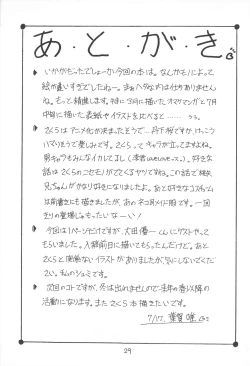 あ・と・が・き
いかがでしたでしょーか今回の本は。なんかモノによって
絵が違いすぎでしたねー。まあヘタなのは仕方ありません
ね。もっと精進します。特に3月に描いたオマケマンガと7月
中旬に描いた表紙やイラストを比べると……うう。
さくらはアニメ化が決まったそうで…月下所ですか、けっこう
ハマりそうで楽しみです。さくらってキャラが立ってますよね。
男キャラもみんなイカしてるし
話はさくらのニセモノがでてくるヤツですね。この話で桃矢
兄ちゃんがかなり好きになりましたよ。あと好きなコスチューム
は前書きにも描きましたが、あのネコ耳メイド服です。一回
きりの登場じゃもったいなーい!
今回は1ページだけですが、太田優一くんにゲストやって
もらいました。入稿前日に描いてもらったんだけど。あと
さくらと関係ないイラストがありましたが気にしないでくだ
さい。私のシュミです。
次回のコトですが、冬は出れませんので来年の春以降の
活動になります。またさくら本描きたいです。
7/17.
29